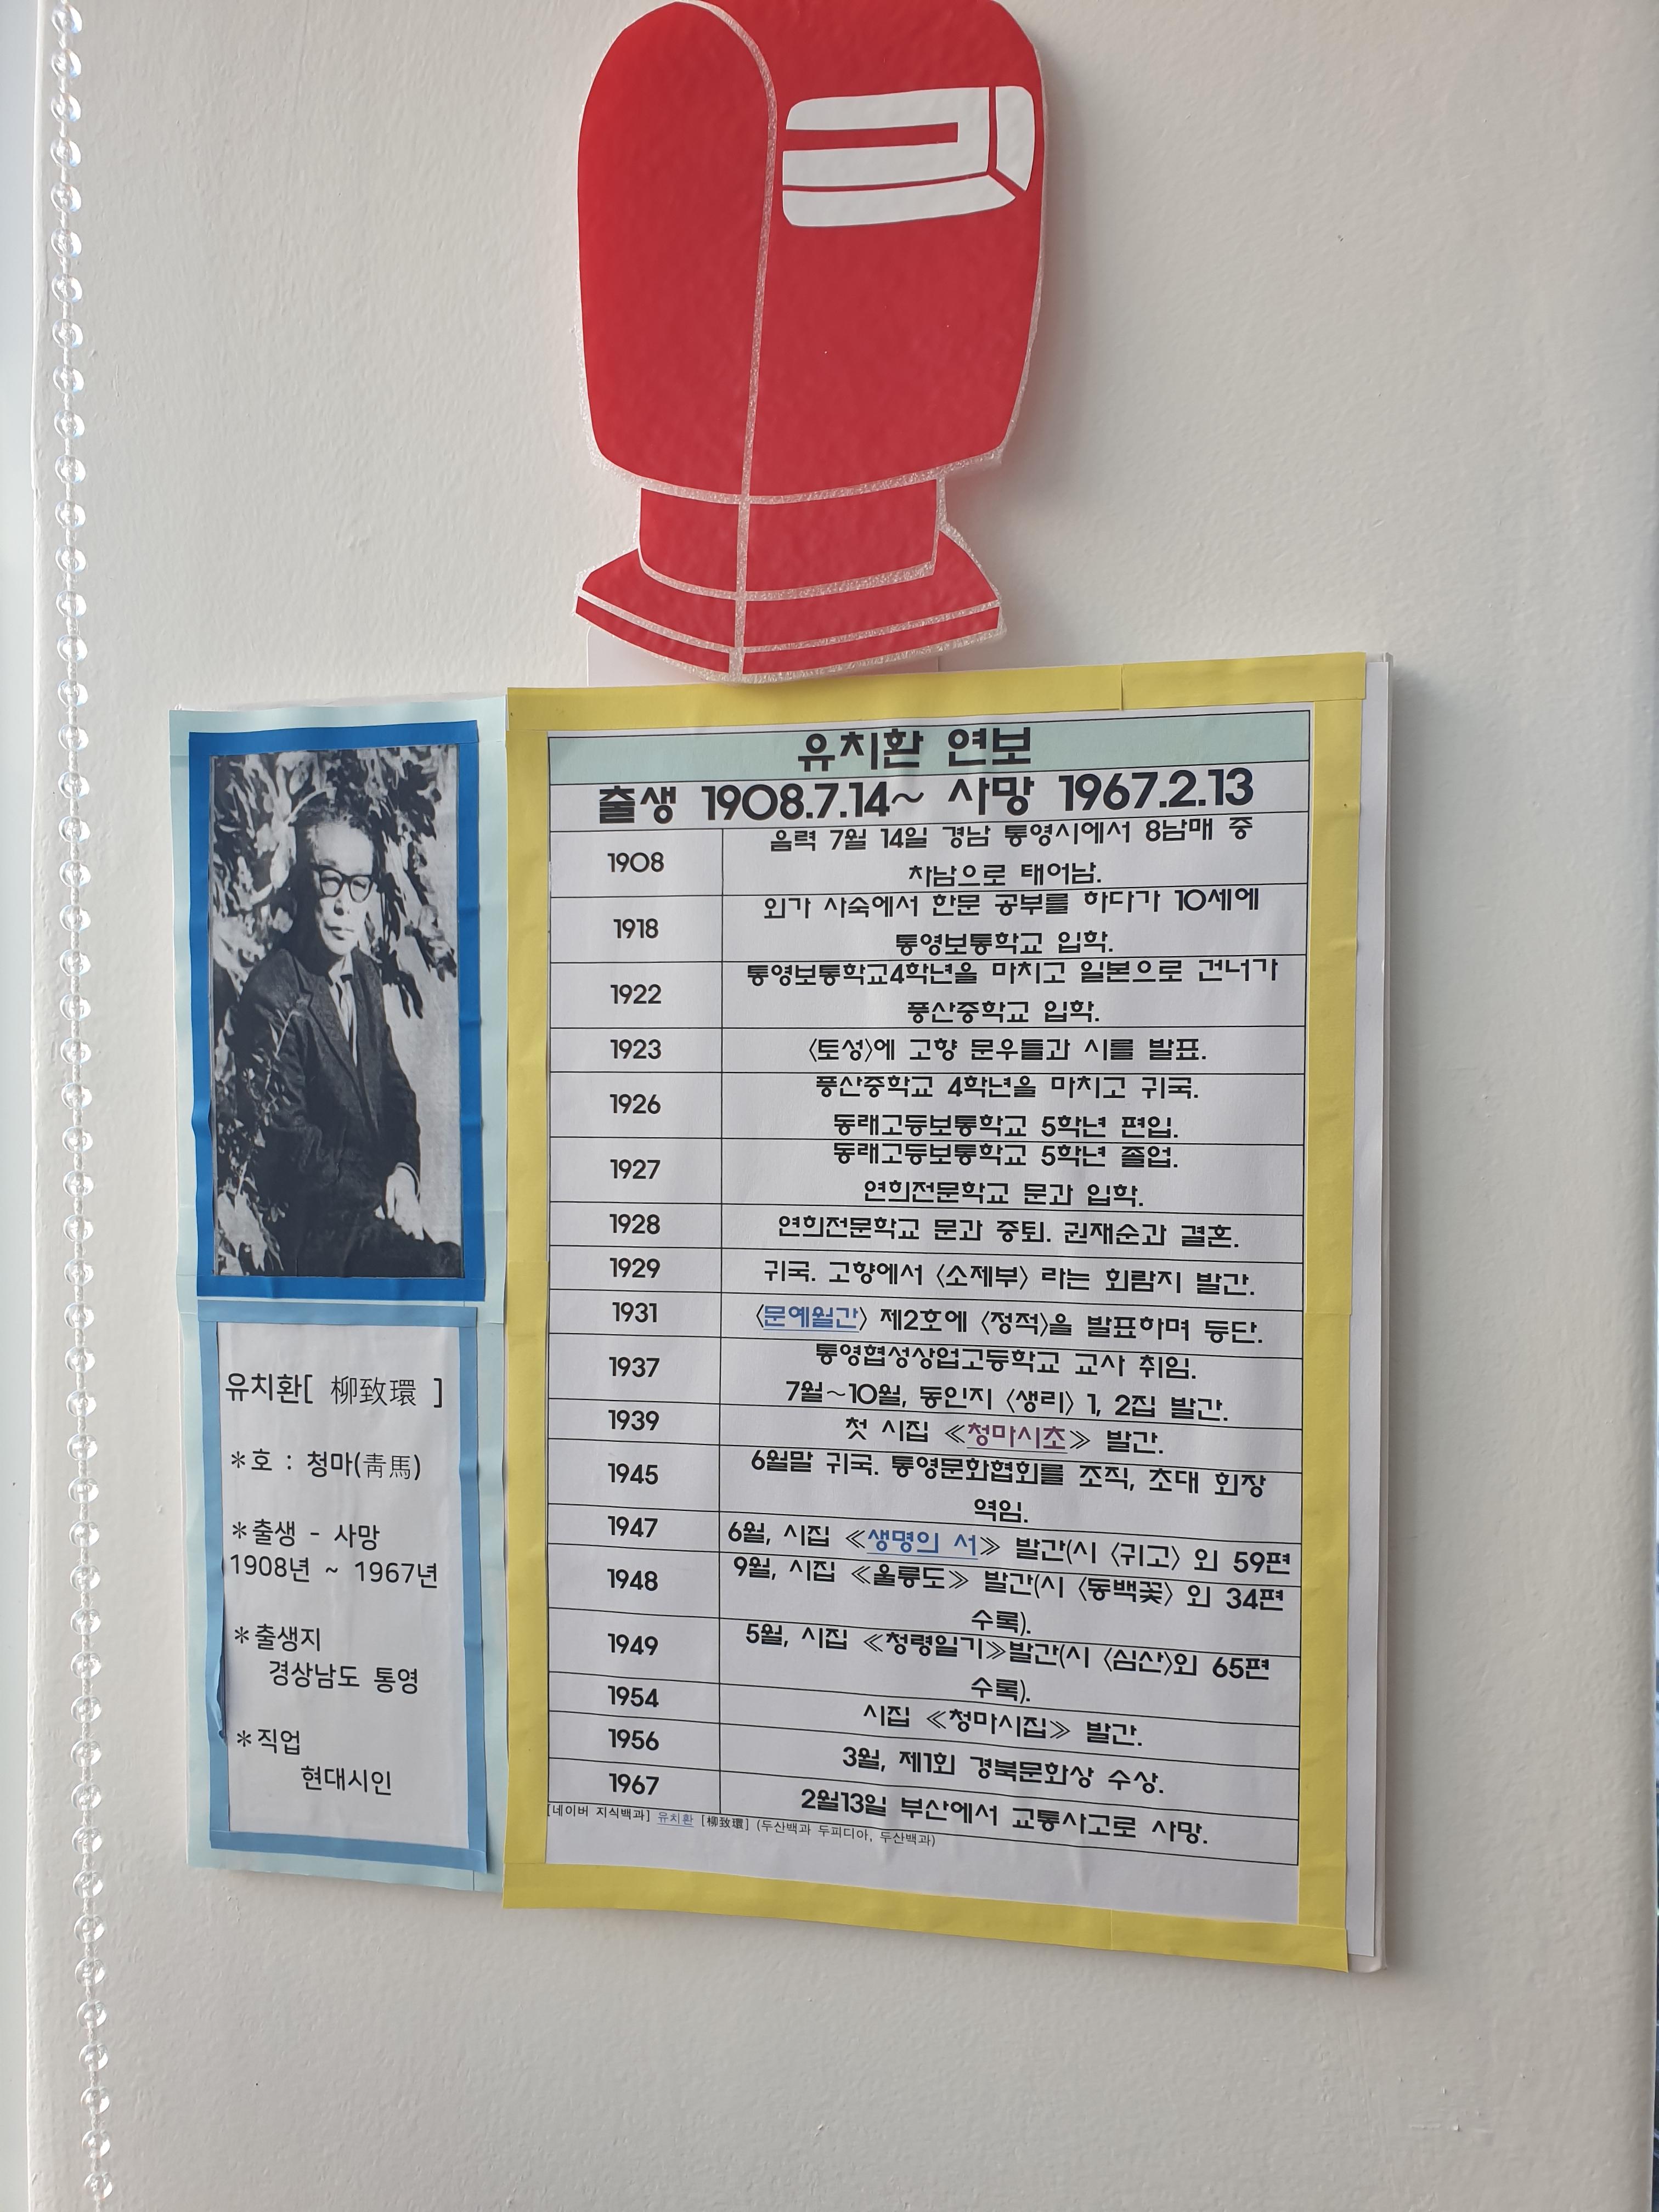 유치환 연보
출생 1908.7.14~ 사망 1967.2.13
1908 음력 7월 14일 경남 통영시에서 8남매 중
차남으로 태어남.
1918 외가 사숙에서 한문 공부를 하다가 10세에
통영보통학교 입학.
1922 통영보통학교4학년을 마치고 일본으로 건너가
풍산중학교 입학.
1923 〈토성〉에 고향 문우들과 시를 발표.
1926 풍산중학교 4학년을 마치고 귀국.
동래고등보통학교 5학년 편입.
1927 동래고등보통학교 5학년 졸업.
연희전문학교 문과 입학.
1928 연희전문학교 문과 중퇴. 권재순과 결혼.
1929 귀국. 고향에서 〈소제부〉 라는 회람지 발간.
1931 〈문예월간〉 제2호에 〈정적〉을 발표하며 등단.
1937 통영협성상업고등학교 교사 취임.
7월~10월, 동인지 〈생리〉 1, 2집 발간.
1939 첫 시집 ≪청마시초≫ 발간.
1945 6월말 귀국. 통영문화협회를 조직, 초대 회장
역임.
1947 6월, 시집 ≪생명의 서≫ 발간(시 〈귀고〉 외 59편
1948 9월, 시집 ≪울릉도≫ 발간(시 〈동백꽃〉 외 34편
수록).
1949 5월, 시집 ≪청령일기≫발간(시 〈심산〉외 65편
수록).
1954 시집 ≪청마시집≫ 발간.
1956 3월, 제1회 경북문화상 수상.
1967 2월13일 부산에서 교통사고로 사망.
[네이버 지식백과] 유치환 [柳致環] (두산백과 두피디아, 두산백과)
유치환[ 柳致環 ]
*호 : 청마(靑馬)
*출생 - 사망
1908년 ~ 1967년
*출생지
경상남도 통영
*직업
현대시인